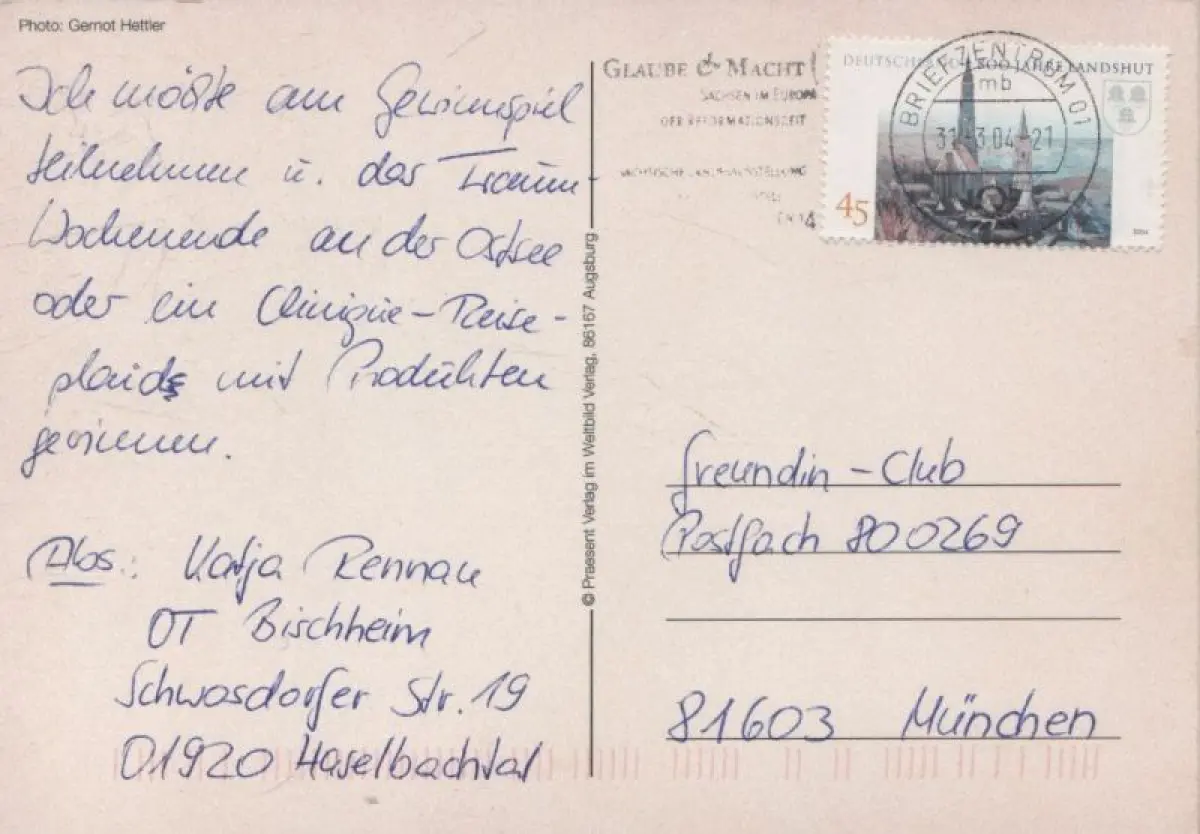 Photo: Gernot Hettler
Ich möchte am Gewinnspiel
teilnehmen u. das Traum-
Wochenende an der Ostsee
oder ein Clinique-Reise-
plaids mit Produkten
gewinnen.
Abs.: Katja Rennau
OT Bischheim
Schwosdorfer Str. 19
01920 Haselbachtal
© Praesent Verlag im Weltbild Verlag, 86167 Augsburg
GLAUBE & MACHT
SACHSEN IM EUROPA
DER REFORMATIONSZEIT
DEUTSCHLAND 800 JAHRE LANDSHUT
45
2004
BRIEFZENTRUM 01
mb
31.3.04-21
freundin-Club
Postfach 800269
81603 München